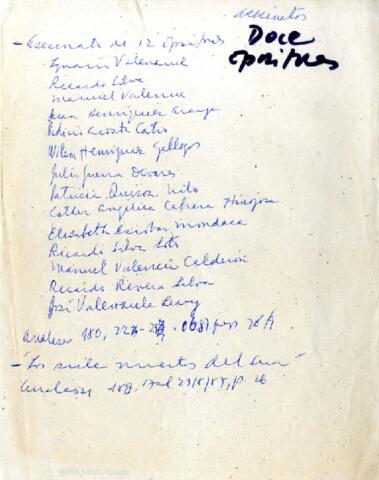 asesinatos
Doce
opositores
- Asesinato de 12 opositores
Ignacio Valenzuel
Ricardo Silva
Manuel Valencia
Juan Henriquez Araya
Patricio Acosta Castro
Wilson Henriquez Gallegos
Julio Guerra Olivares
Patricia Quiroz Nilo
Esther Angelica Cabrera Hinojosa
Elizabeth Escobar Mondaca
Ricardo Silva Soto
Manuel Valencia Calderón
Ricardo Rivera Silva
José Valenzuela Levy
Analisis 180,
- "Los siete muertos del
Analisis, 189,